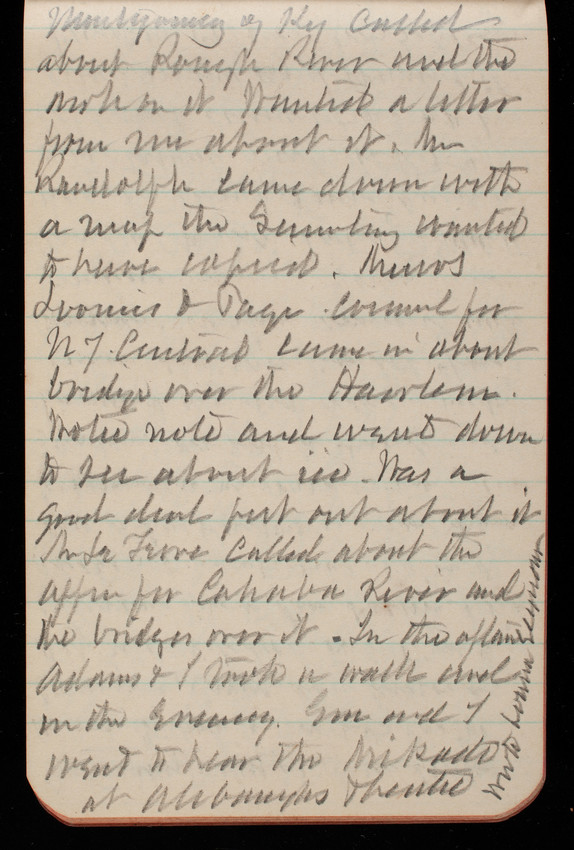 Montgomery of Ky called
about Rough River and the
work on it Wanted a letter
from me about it. Mr
Randolph came down with
a map the Secretary wanted
to have copied. Messrs
Loomis & Page counsel for
NY Central came in about
bridge over the Haarlem.
Wrote note and went down
to see about it. Was a
good deal put out about it
Mr called about the
appn for Cahaba River and
the bridges over it - In the aftern
Adams & I took a walk and
in the Evening. Em and I
went to hear the Mikado
at Albaughs theatre